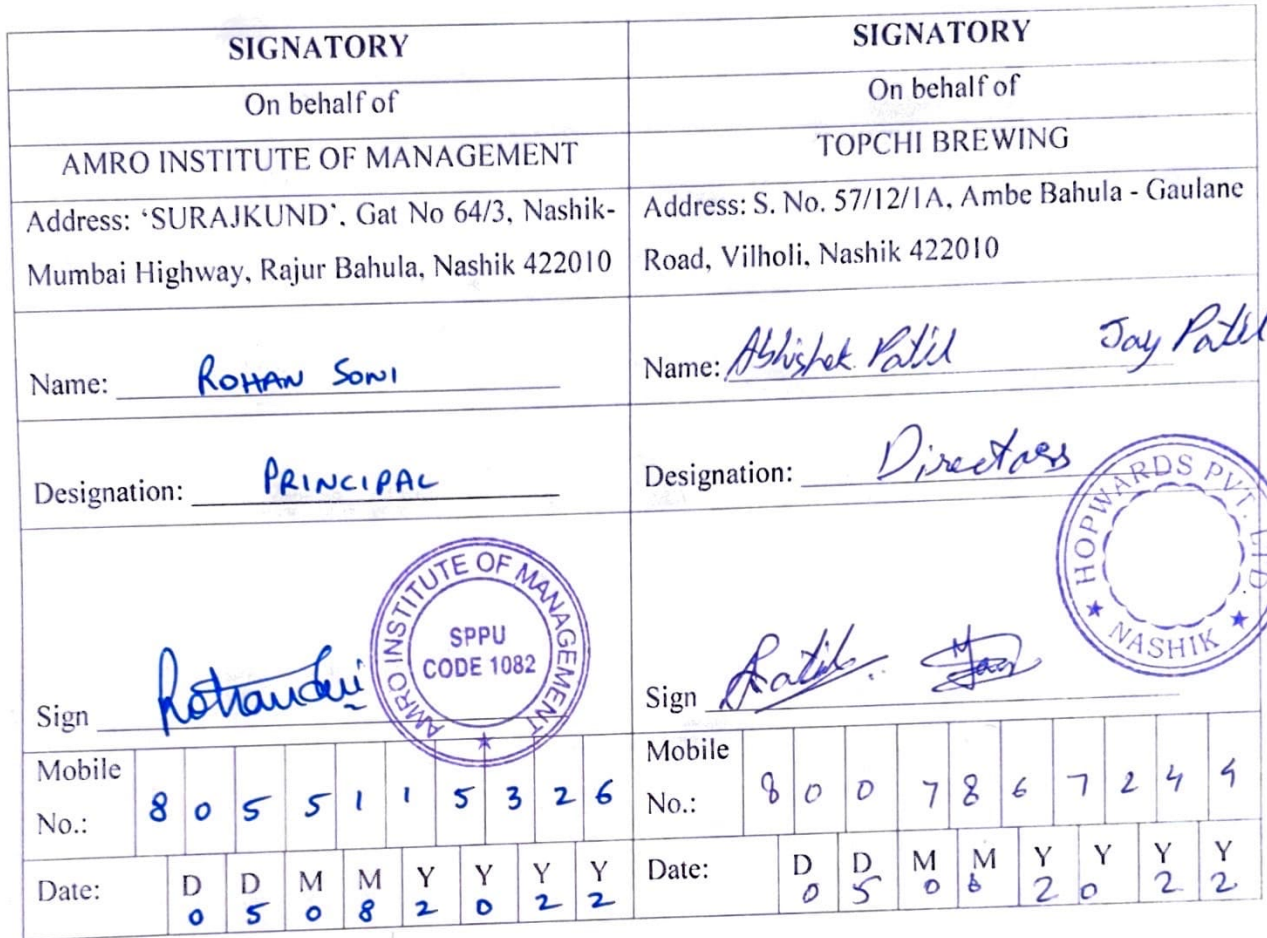 SIGNATORY
On behalf of
AMRO INSTITUTE OF MANAGEMENT
Address: ‘SURAJKUND’, Gat No 64/3, Nashik-
Mumbai Highway, Rajur Bahula, Nashik 422010
Name: ROHAN SONI
Designation: PRINCIPAL
AMRO INSTITUTE OF MANAGEMENT
SPPU
CODE 1082
Sign
Mobile
No.: 8 0 5 5 1 1 5 3 2 6
Date: D D M M Y Y Y Y
0 5 0 8 2 0 2 2
SIGNATORY
On behalf of
TOPCHI BREWING
Address: S. No. 57/12/1A, Ambe Bahula - Gaulane
Road, Vilholi, Nashik 422010
Name: Abhishek Patil Jay Patil
Designation: Directors
HOPWARDS PVT. LTD.
NASHIK
Sign
Mobile
No.: 8 0 0 7 8 6 7 2 4 4
Date: D D M M Y Y Y Y
0 5 0 8 2 0 2 2